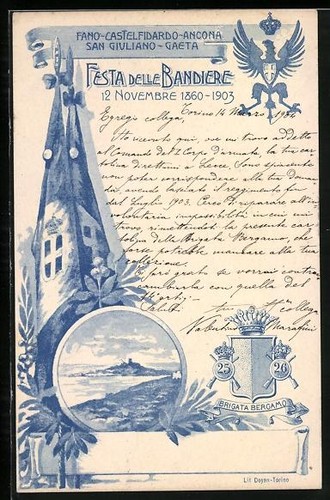 FANO-CASTELFIDARDO-ANCONA
SAN GIULIANO-GAETA
FESTA DELLE BANDIERE
12 NOVEMBRE 1860-1903
Torino 14 Marzo 1904
Egregio collega,
Ho ricevuto qui, ove mi trovo addetto
al Comando del I Corpo d'armata, la tua car-
tolina direttami a Lecce. Sono spiacente
non poter corrispondere alla tua doman
da, avendo lasciato il reggimento fin
dal Luglio 1903. Cerco di riparare all'in
volontaria impossibilità in cui mi
trovo, rimettendoti la presente car
tolina della Brigata Bergamo, che
forse potrebbe mancare alla tua
collezione.
Ti sarò grato se vorrai contra
cambiarla con quella del
Saluti
collega
Valentino
25
26
BRIGATA BERGAMO
Lit Doyen-Torino